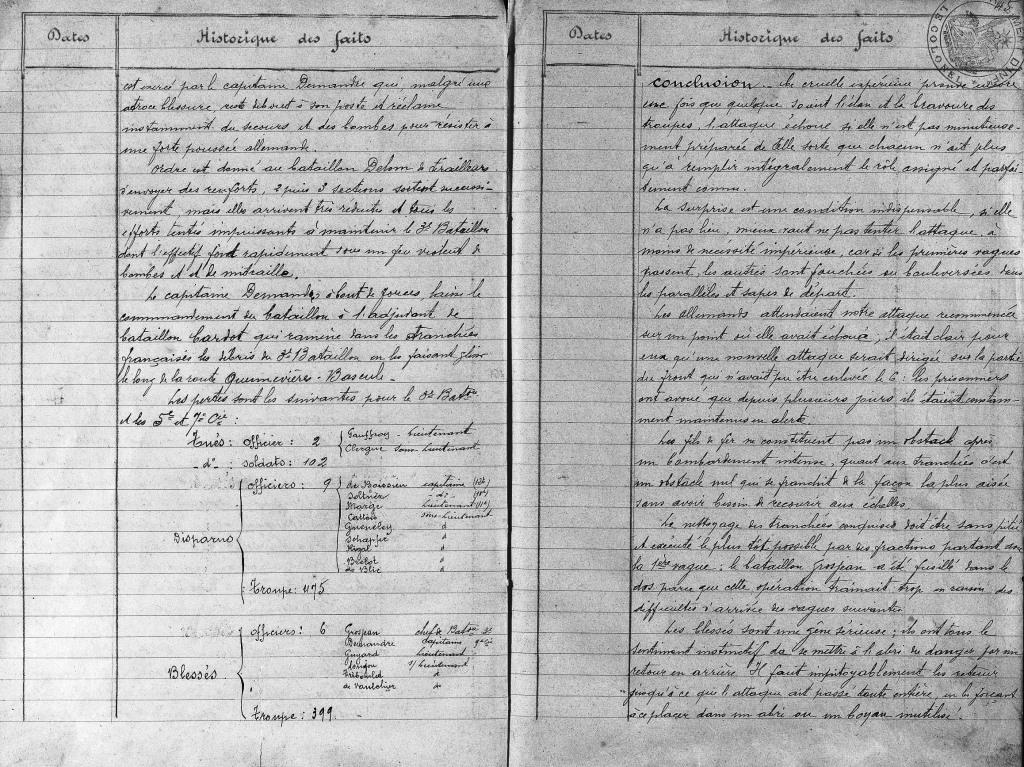 Dates Historique des faits
est exercé par le capitaine Demandre qui, malgré une
atroce blessure, reste debout à son poste et réclame
instamment du secours et des bombes pour résister à
une forte poussée allemande.
Ordre est donné au bataillon Delom de tirailleurs
d'envoyer des renforts, 2 puis 3 sections sortent successi-
vement, mais elles arrivent très réduites et tous les
efforts tentés impuissants à maintenir le 3e Bataillon
dont l'effectif fond rapidement sous un feu violent de
bombes et de mitraille.
Le capitaine Demandre, à bout de forces, laisse le
commandement du bataillon à l'adjudant de
bataillon Cardot qui ramène dans les tranchées
françaises les débris du 3e Bataillon en les faisant glisser
le long de la route Quennevières - Bascule.
Les pertes sont les suivantes pour le 3e Baton
et les 5e et 7e Cie :
Tués : officier : 2 { Gauffroy - Lieutenant
Clergue sous-Lieutenant
- do - : soldats : 102
Disparus { officiers : 9 { de Boissieu capitaine
Soltner do
Marge Lieutenant
sous-Lieutenant
d
Schappe d
Rigal d
d
de Blic d
: Troupe : 1175
Blessés { officiers : 6 Grosjean chef de Baton
Demandre capitaine
Guyard Lieutenant
s/Lieutenant
do
de Vaulchier do
Troupe : 399.
Dates Historique des faits
Conclusion - Une cruelle expérience prouve encore
une fois que quelque soient l'élan et la bravoure des
troupes, l'attaque échoue si elle n'est pas minutieuse-
ment préparée de telle sorte que chacun n'ait plus
qu'à remplir intégralement le rôle assigné et parfai-
tement connu.
La surprise est une condition indispensable, si elle
n'a pas lieu, mieux vaut ne pas tenter l'attaque, à
moins de nécessité impérieuse, car si les premières vagues
passent, les autres sont fauchées ou bouleversées dans
les parallèles et sapes de départ.
Les allemands attendaient notre attaque recommencée
sur un point où elle avait échoué, il était clair pour
eux qu'une nouvelle attaque serait dirigée sur la partie
du front qui n'avait pu être enlevée le 6 : les prisonniers
ont avoué que depuis plusieurs jours ils étaient constam-
ment maintenus en alerte.
Les fils de fer ne constituent pas un obstacle après
un bombardement intense, quant aux tranchées c'est
un obstacle nul qui se franchit de la façon la plus aisée
sans avoir besoin de recourir aux échelles.
Le nettoyage des tranchées conquises doit être sans pitié
et exécuté le plus tôt possible par des fractions partant dans
la 1ère vague ; le bataillon Grosjean a été fusillé dans le
dos parce que cette opération trainait trop en raison des
difficultés d'arrivée des vagues suivantes.
Les blessés sont une gêne sérieuse ; ils ont tous le
sentiment instinctif de se mettre à l'abri du danger par un
retour en arrière. Il faut impitoyablement les retenir
jusqu'à ce que l'attaque ait passé toute entière, en les forçant
à se placer dans un abri ou un boyau inutilisé.